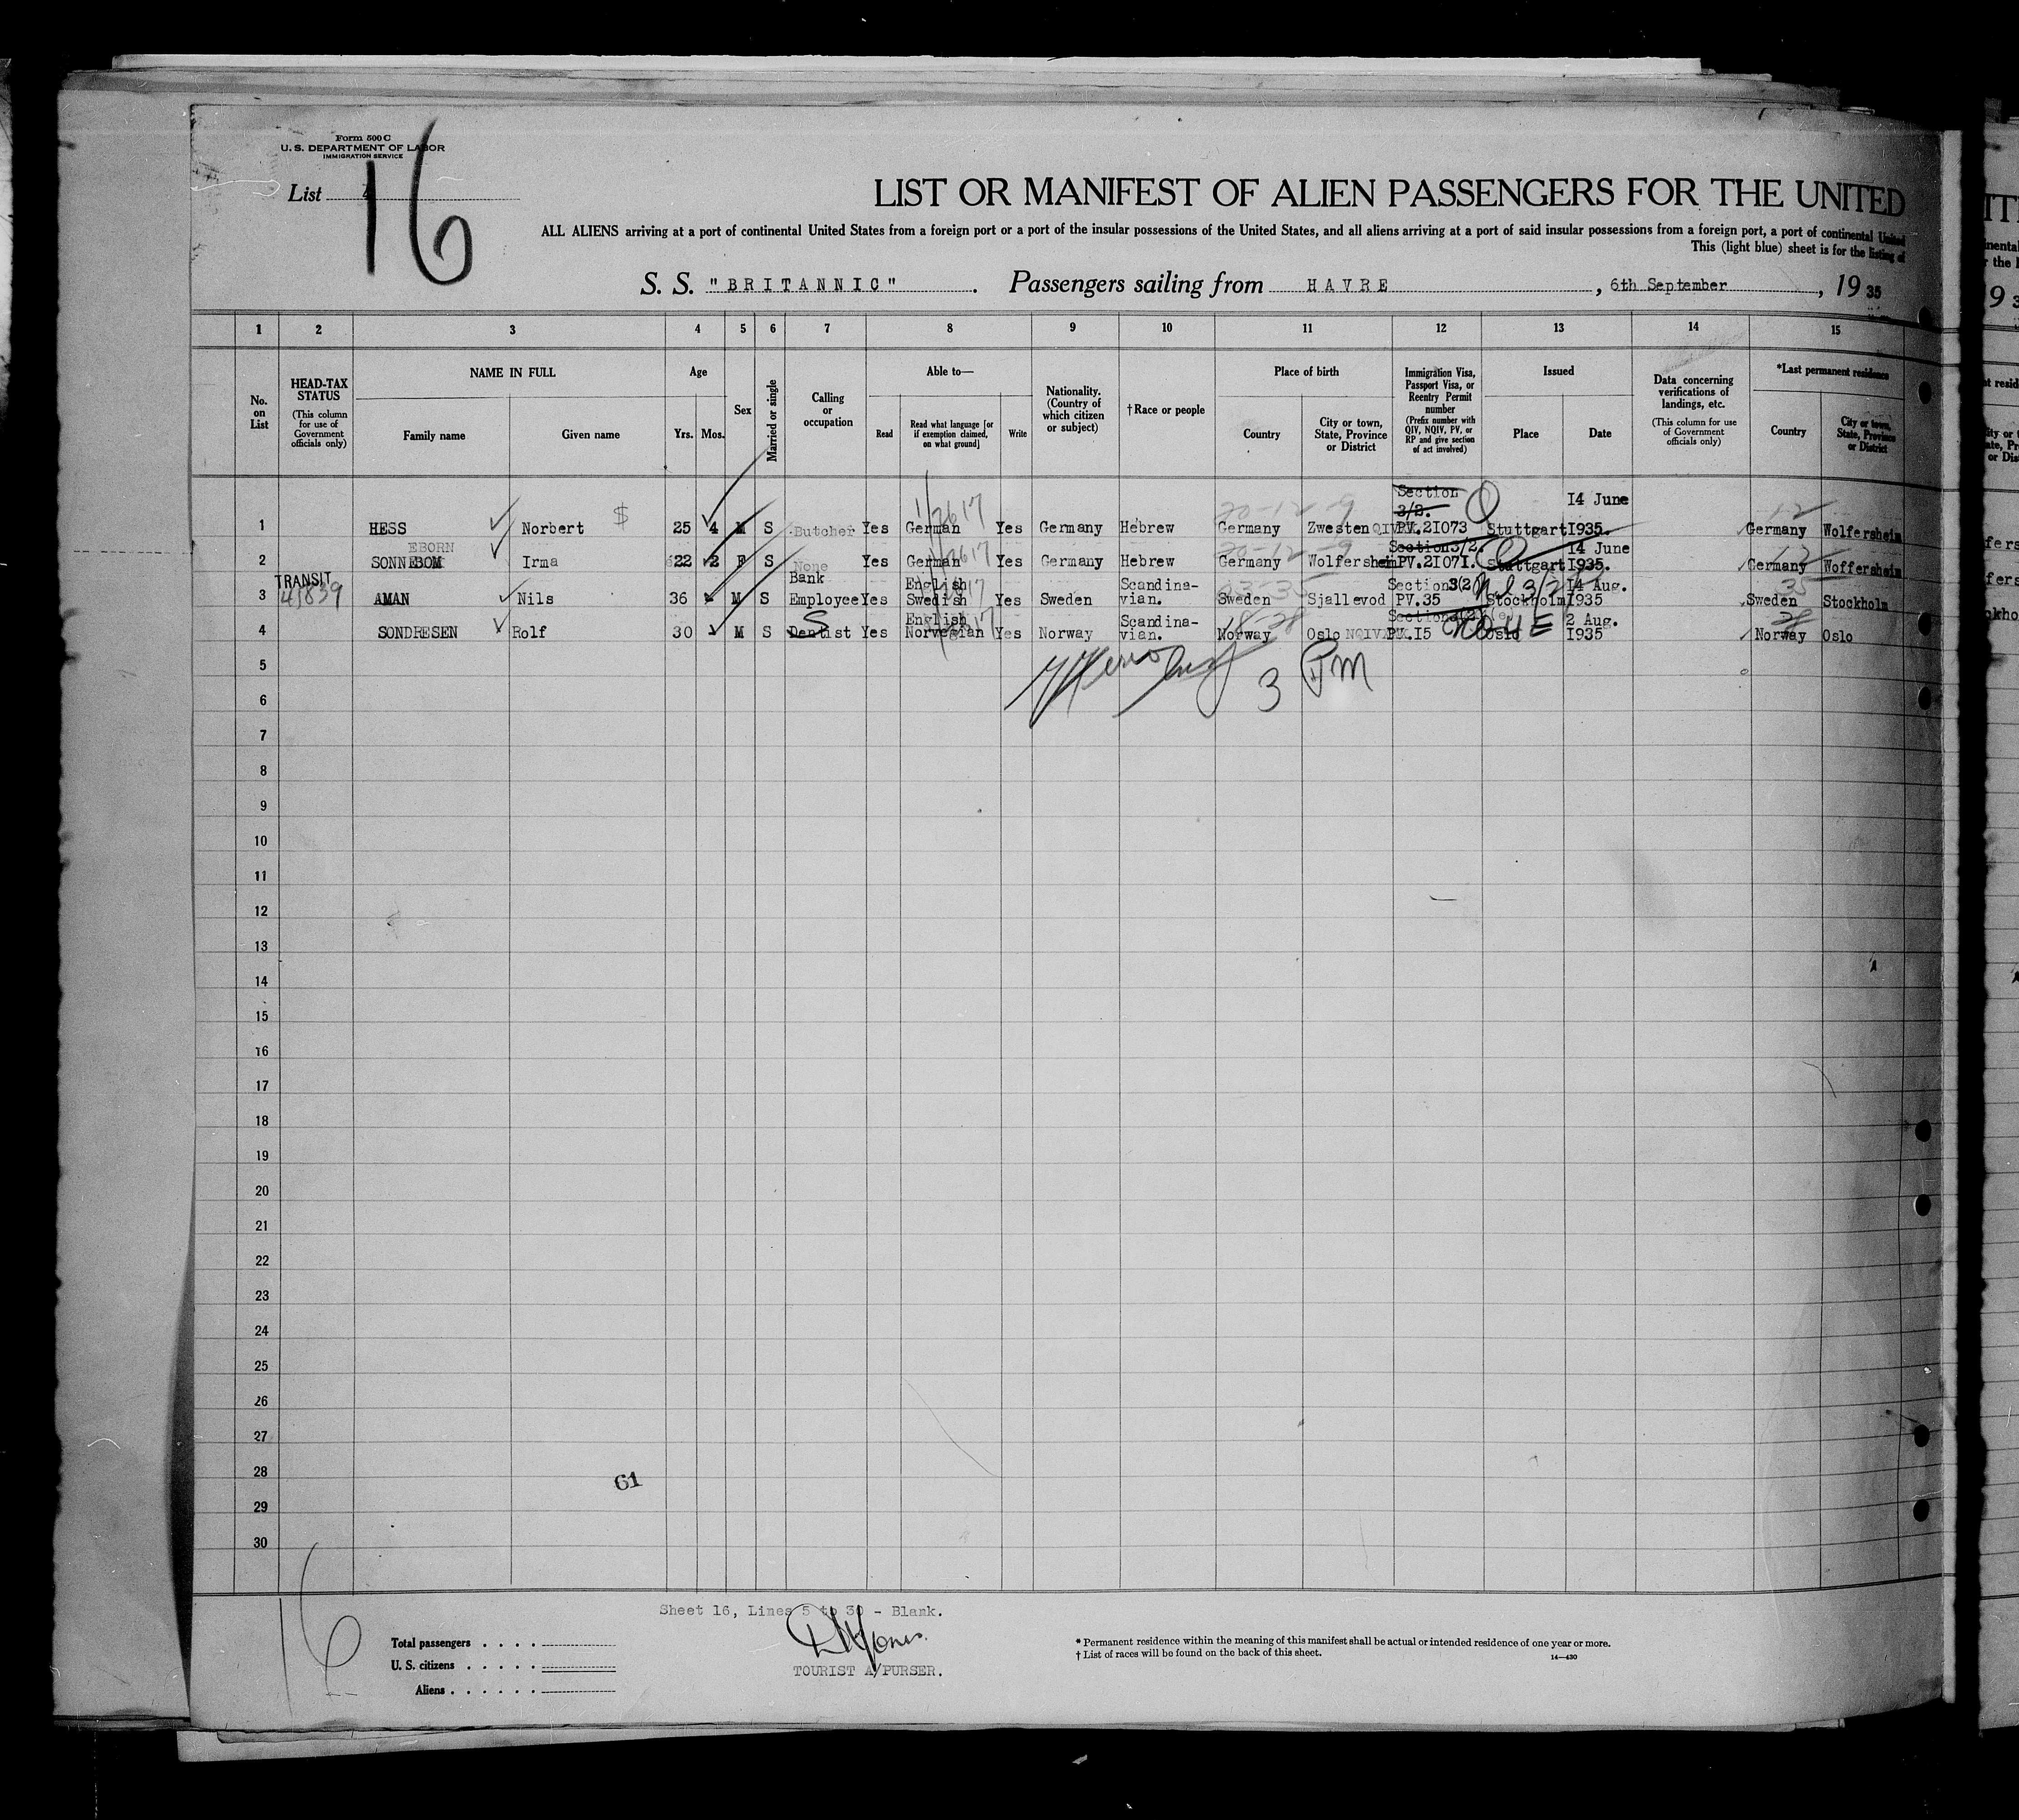 Form 500 C
U. S. DEPARTMENT OF LABOR
IMMIGRATION SERVICE
List 16
LIST OR MANIFEST OF ALIEN PASSENGERS FOR THE UNITED
ALL ALIENS arriving at a port of continental United States from a foreign port or a port of the insular possessions of the United States, and all aliens arriving at a port of said insular possessions from a foreign port, a port of continental United
This (light blue) sheet is for the listing of
S. S. "BRITANNIC". Passengers sailing from HAVRE, 6th September, 1935
1 2 3 4 5 6 7 8 9 10 11 12 13 14 15
No. on List
HEAD-TAX STATUS (This column for use of Government officials only)
NAME IN FULL Family name Given name
Age Yrs. Mos.
Sex
Married or single
Calling or occupation
Able to— Read Read what language [or if exemption claimed, on what ground] Write
Nationality. (Country of which citizen or subject)
†Race or people
Place of birth Country City or town, State, Province or District
Immigration Visa, Passport Visa, or Reentry Permit number (Prefix number with QIV, NQIV, PV, or RP and give section of act involved)
Issued Place Date
Data concerning verifications of landings, etc. (This column for use of Government officials only)
*Last permanent residence Country City or town, State, Province or District
Section 3/2. 14 June
1 HESS Norbert $ 25 4 M S Butcher Yes German Yes Germany Hebrew Germany Zwesten QIV PV.21073 Stuttgart 1935. Germany Wolfersheim
EBORN Section 3/2. 14 June
2 SONNEBOM Irma 22 2 F S None Yes German Yes Germany Hebrew Germany Wolfersheim PV.21071. Stuttgart 1935. Germany Woffersheim
TRANSIT Bank English Scandina- Section 3(2 14 Aug.
3 AMAN Nils 36 M S Employee Yes Swedish Yes Sweden vian. Sweden Sjallevod PV.35 Stockholm 1935 Sweden Stockholm
English Scandina- Section 3(2) 2 Aug.
4 SONDRESEN Rolf 30 M S Dentist Yes Norwegian Yes Norway vian. Norway Oslo NQIV PV.15 Oslo 1935 Norway Oslo
5
3 PM
6
7
8
9
10
11
12
13
14
15
16
17
18
19
20
21
22
23
24
25
26
27
28
61
29
30
16
Sheet 16, Lines 5 to 30 - Blank.
Total passengers . . . .
U. S. citizens . . . . .
Aliens . . . . . .
TOURIST A/PURSER.
* Permanent residence within the meaning of this manifest shall be actual or intended residence of one year or more.
† List of races will be found on the back of this sheet.
14—430